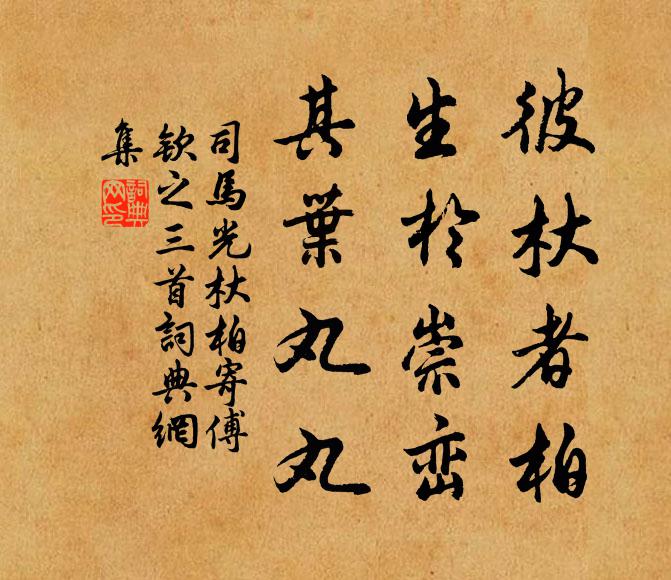 彼杕者柏
生於崇峦
其葉丸丸
司馬光杕柏寄傅
欽之三首詞典網
集
詞典
网印